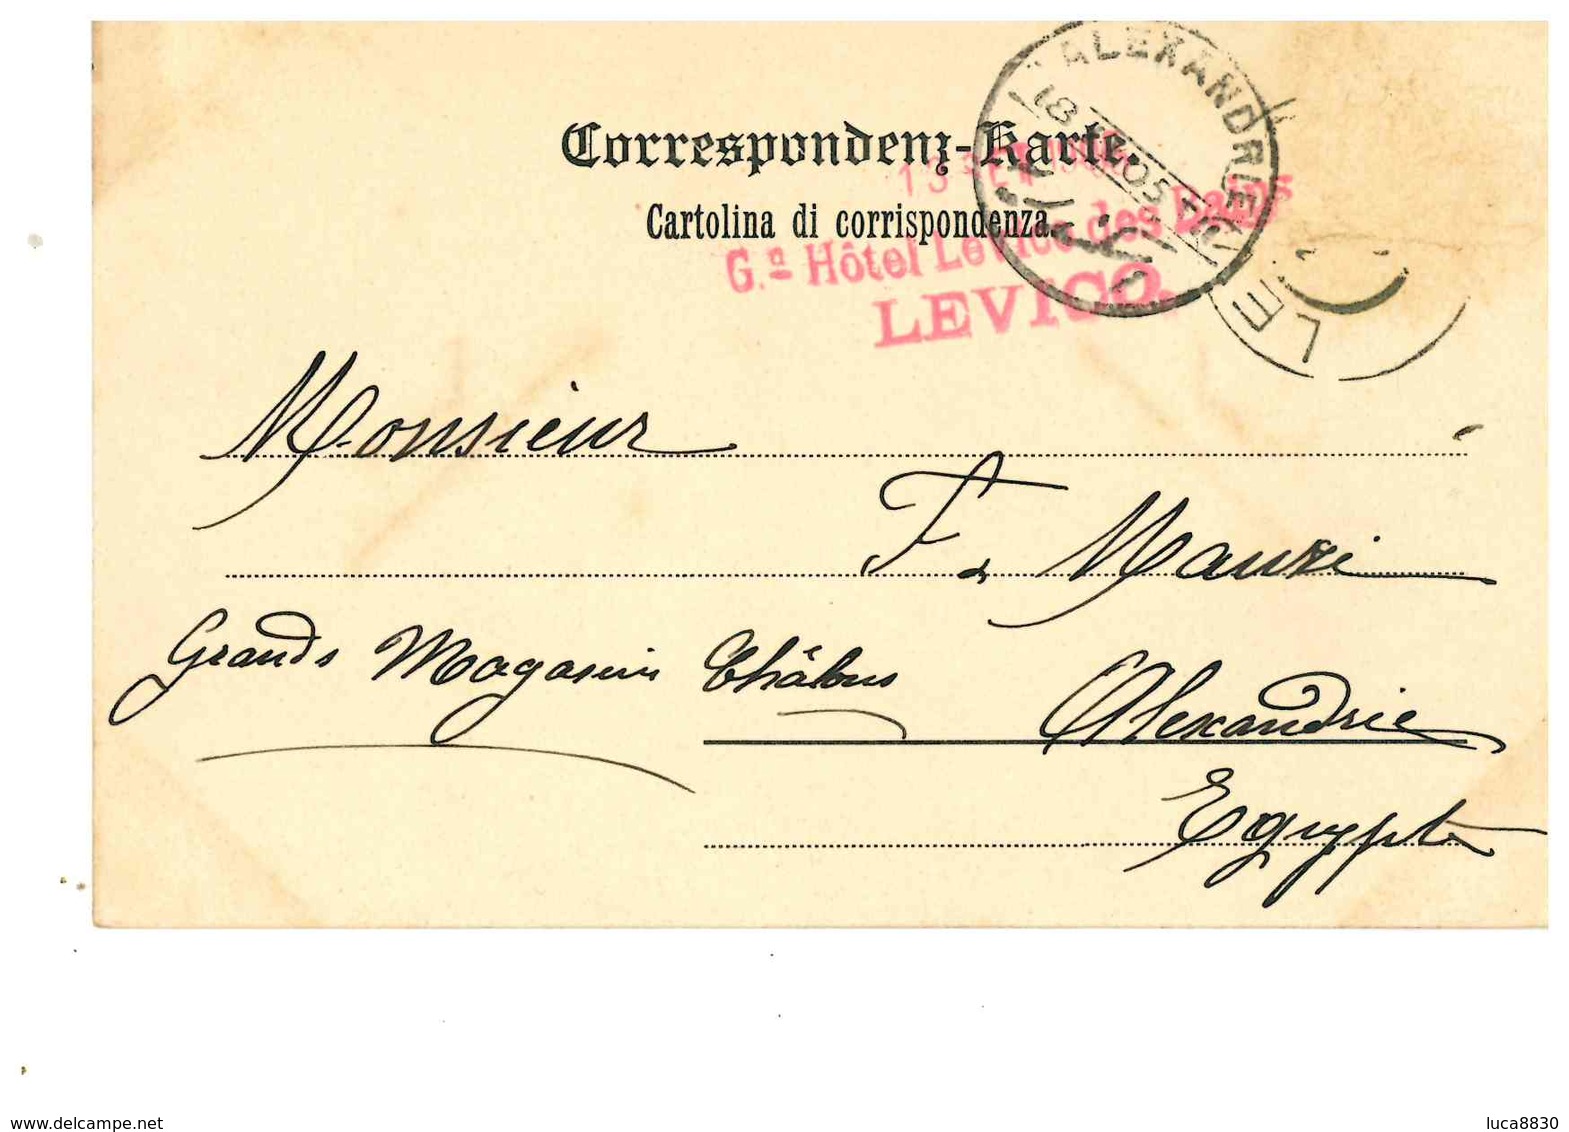 ALEXANDRIE
18 05
Correspondenz-Karte.
13 SET 1905
Cartolina di corrispondenza.
G.n Hôtel Levico des Bains
LEVICO.
LE
Monsieur
F. Mauri
Grands Magasins Châlons
Alexandrie
Egypt
www.delcampe.net
luca8830